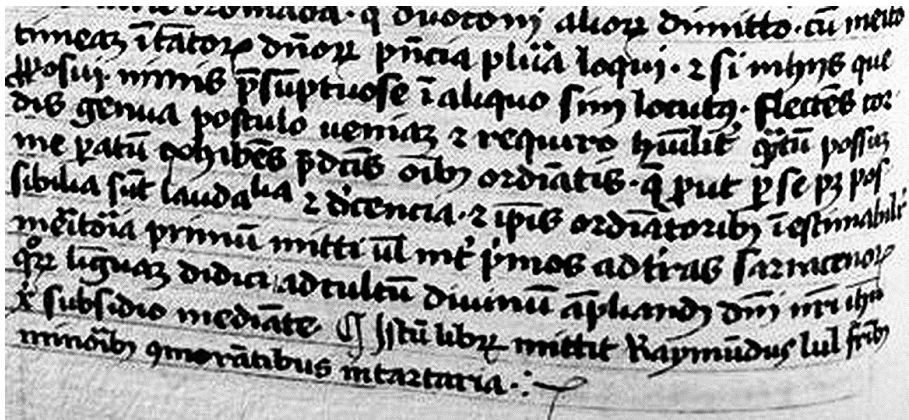 alioꝝ dimitto. cū meīto
timeaȝ ītātoꝝ dn̄oꝝ pn̄cia plīa loqui. ⁊ si in hijs que
ꝓposui. nimis p̄sūptuose ī aliquo sim locutꝰ. flectēs cor
dis genua postulo ueniaȝ ⁊ requiro hūilit̄ q̄tū possuȝ
me ꝑatū exhibēs p̄dcīs oībȝ ordīatis. q̄ ꝓut ꝑ se pȝ pos
sibilia sūt laudabilia ⁊ dicencia. ⁊ ip̄is ordīatoribȝ īestimabilit̄
meītoīa primū mitti ul̄ int̄ p̄mos ad tīras sarracenoꝝ
qͦꝝ liguaȝ didici ad cultū diuinū āpliandȝ dn̄i nr̄i ihū
x̄ subsidio mediāte. ¶ Istū libꝝ mittit Raymūdus lul fr̄ibȝ
minoībȝ ꝯmorātibus in tartaria.